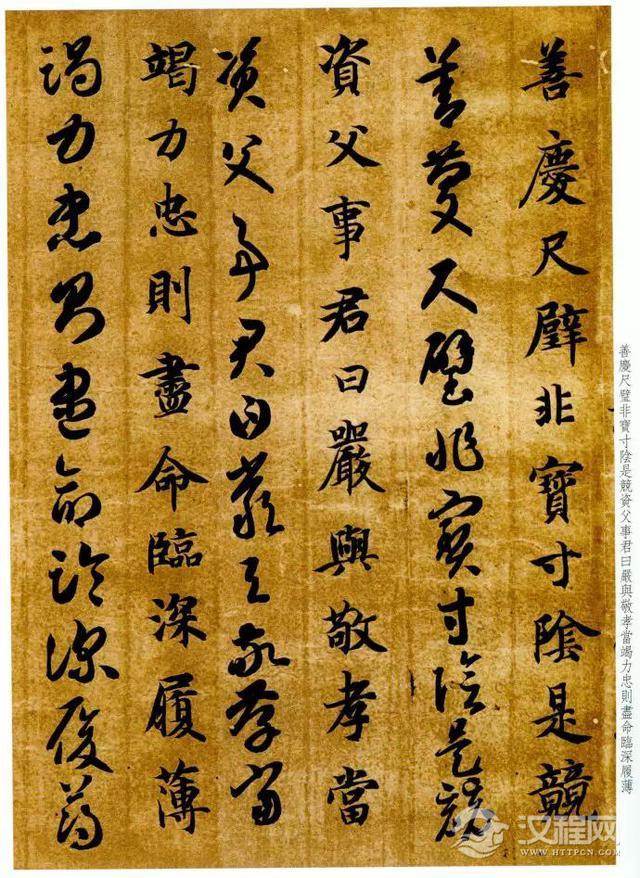 善慶尺璧非寶寸陰是競
善慶尺璧非寶寸陰是競
資父事君曰嚴與敬孝當
資父事君曰嚴與敬孝當
竭力忠則盡命臨深履薄
竭力忠則盡命臨深履薄
善慶尺璧非寶寸陰是競資父事君曰嚴與敬孝當竭力忠則盡命臨深履薄
汉程网
WWW.HTTPCN.COM